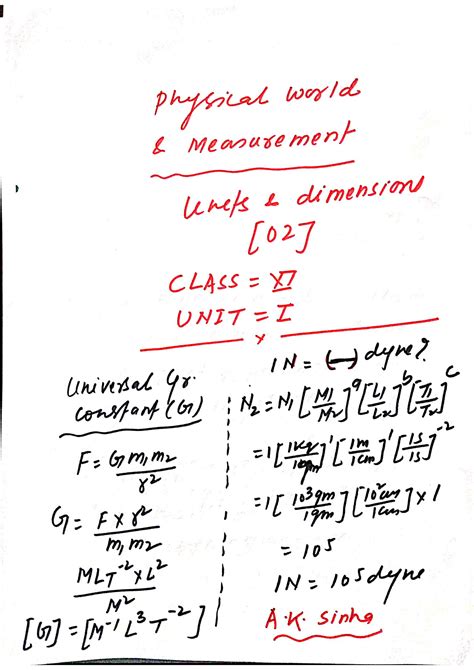 Physical world
& Measurement
Units & dimensions
[02]
CLASS = XI
UNIT = I
x
Universal Gr.
constant (G)
F = G m₁ m₂ / r²
G = F × r² / m₁ m₂
MLT⁻² × L² / M²
[G] = [M⁻¹ L³ T⁻²]
1N = (—) dyne?
N₂ = N₁ [M₁/M₂]ᵃ [L₁/L₂]ᵇ [T₁/T₂]ᶜ
= 1 [1kg/1gm]¹ [1m/1cm]¹ [1S/1S]⁻²
= 1 [10³gm/1gm] [10²cm/1cm] × 1
= 10⁵
1N = 10⁵ dyne
A.K. Sinha